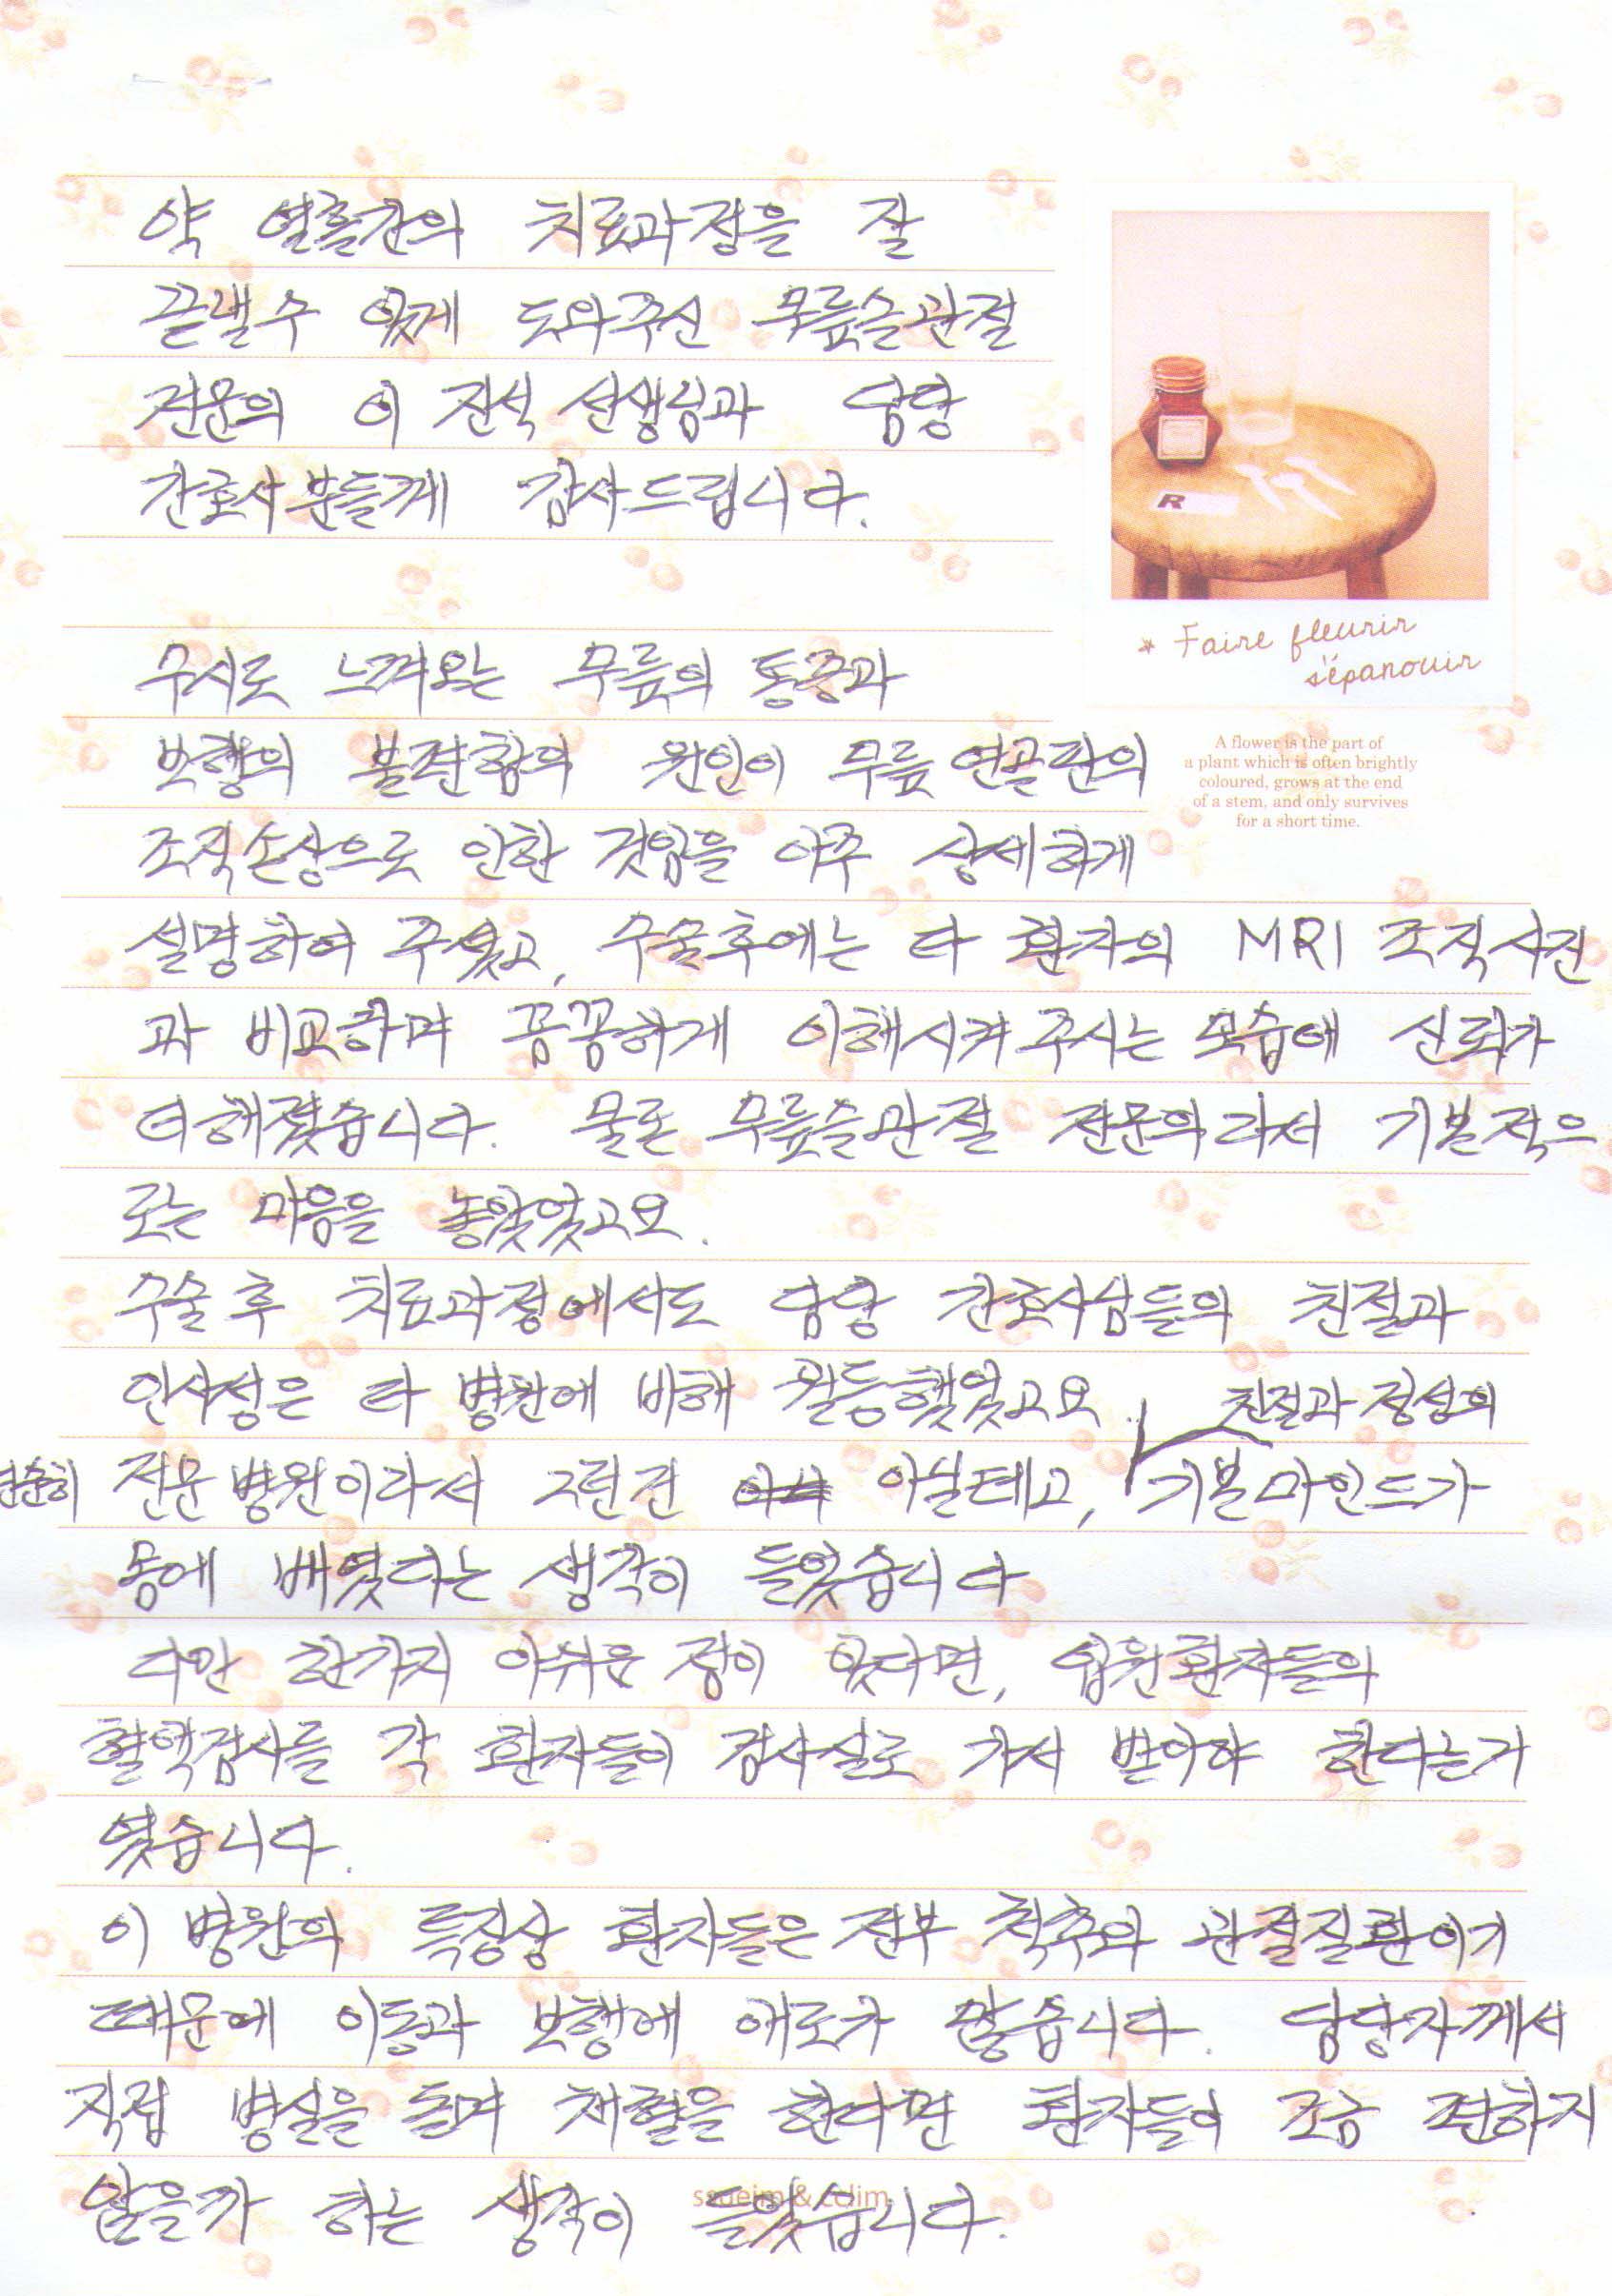 약 열흘간의 치료과정을 잘
끝낼수 있게 도와주신 무릎슬관절
전문의 이 진석 선생님과 담당
간호사분들께 감사드립니다.
수시로 느껴오는 무릎의 통증과
보행의 불편함의 원인이 무릎연골판의
조직손상으로 인한 것임을 아주 상세하게
설명하여 주셨고, 수술후에는 타 환자의 MRI 조직사진
과 비교하며 꼼꼼하게 이해시켜 주시는 모습에 신뢰가
더해졌습니다. 물론 무릎슬관절 전문의라서 기본적으
로는 마음을 놓았었고요.
수술 후 치료과정에서도 담당 간호사님들의 친절과
인사성은 타 병원에 비해 월등했었고요. 친절과 정성의
단순히 전문병원이라서 그런건 아닐테고, 기본마인드가
몸에 배였다는 생각이 들었습니다
다만 한가지 아쉬운 점이 있다면, 입원환자들의
혈액검사를 각 환자들이 검사실로 가서 받아야 한다는거
였습니다.
이 병원의 특징상 환자들은 전부 척추와 관절질환이기
때문에 이동과 보행에 애로가 많습니다. 담당자께서
직접 병실을 돌며 채혈을 한다면 환자들이 조금 편하지
않을까 하는 생각이 들었습니다.
R
* Faire fleurir
s'épanouir
A flower is the part of
a plant which is often brightly
coloured, grows at the end
of a stem, and only survives
for a short time.